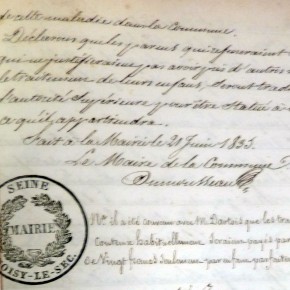 de cette maladie dans la Commune.
Déclarons que les parents qui refuseraient
qui ne justifieraient pas avoir pris d'autres
le traitement de leurs enfans, seront
l'autorité Supérieure pour être Statué à
ce qu'il appartiendra.
Fait à la Mairie le 21 Juin 1835.
Le Maire de la Commune
SEINE
MAIRIE
NOISY-LE-SEC
Nta il a été convenu avec M. Dartois que les
habituellement seraient payés
de Vingt francs Seulement par